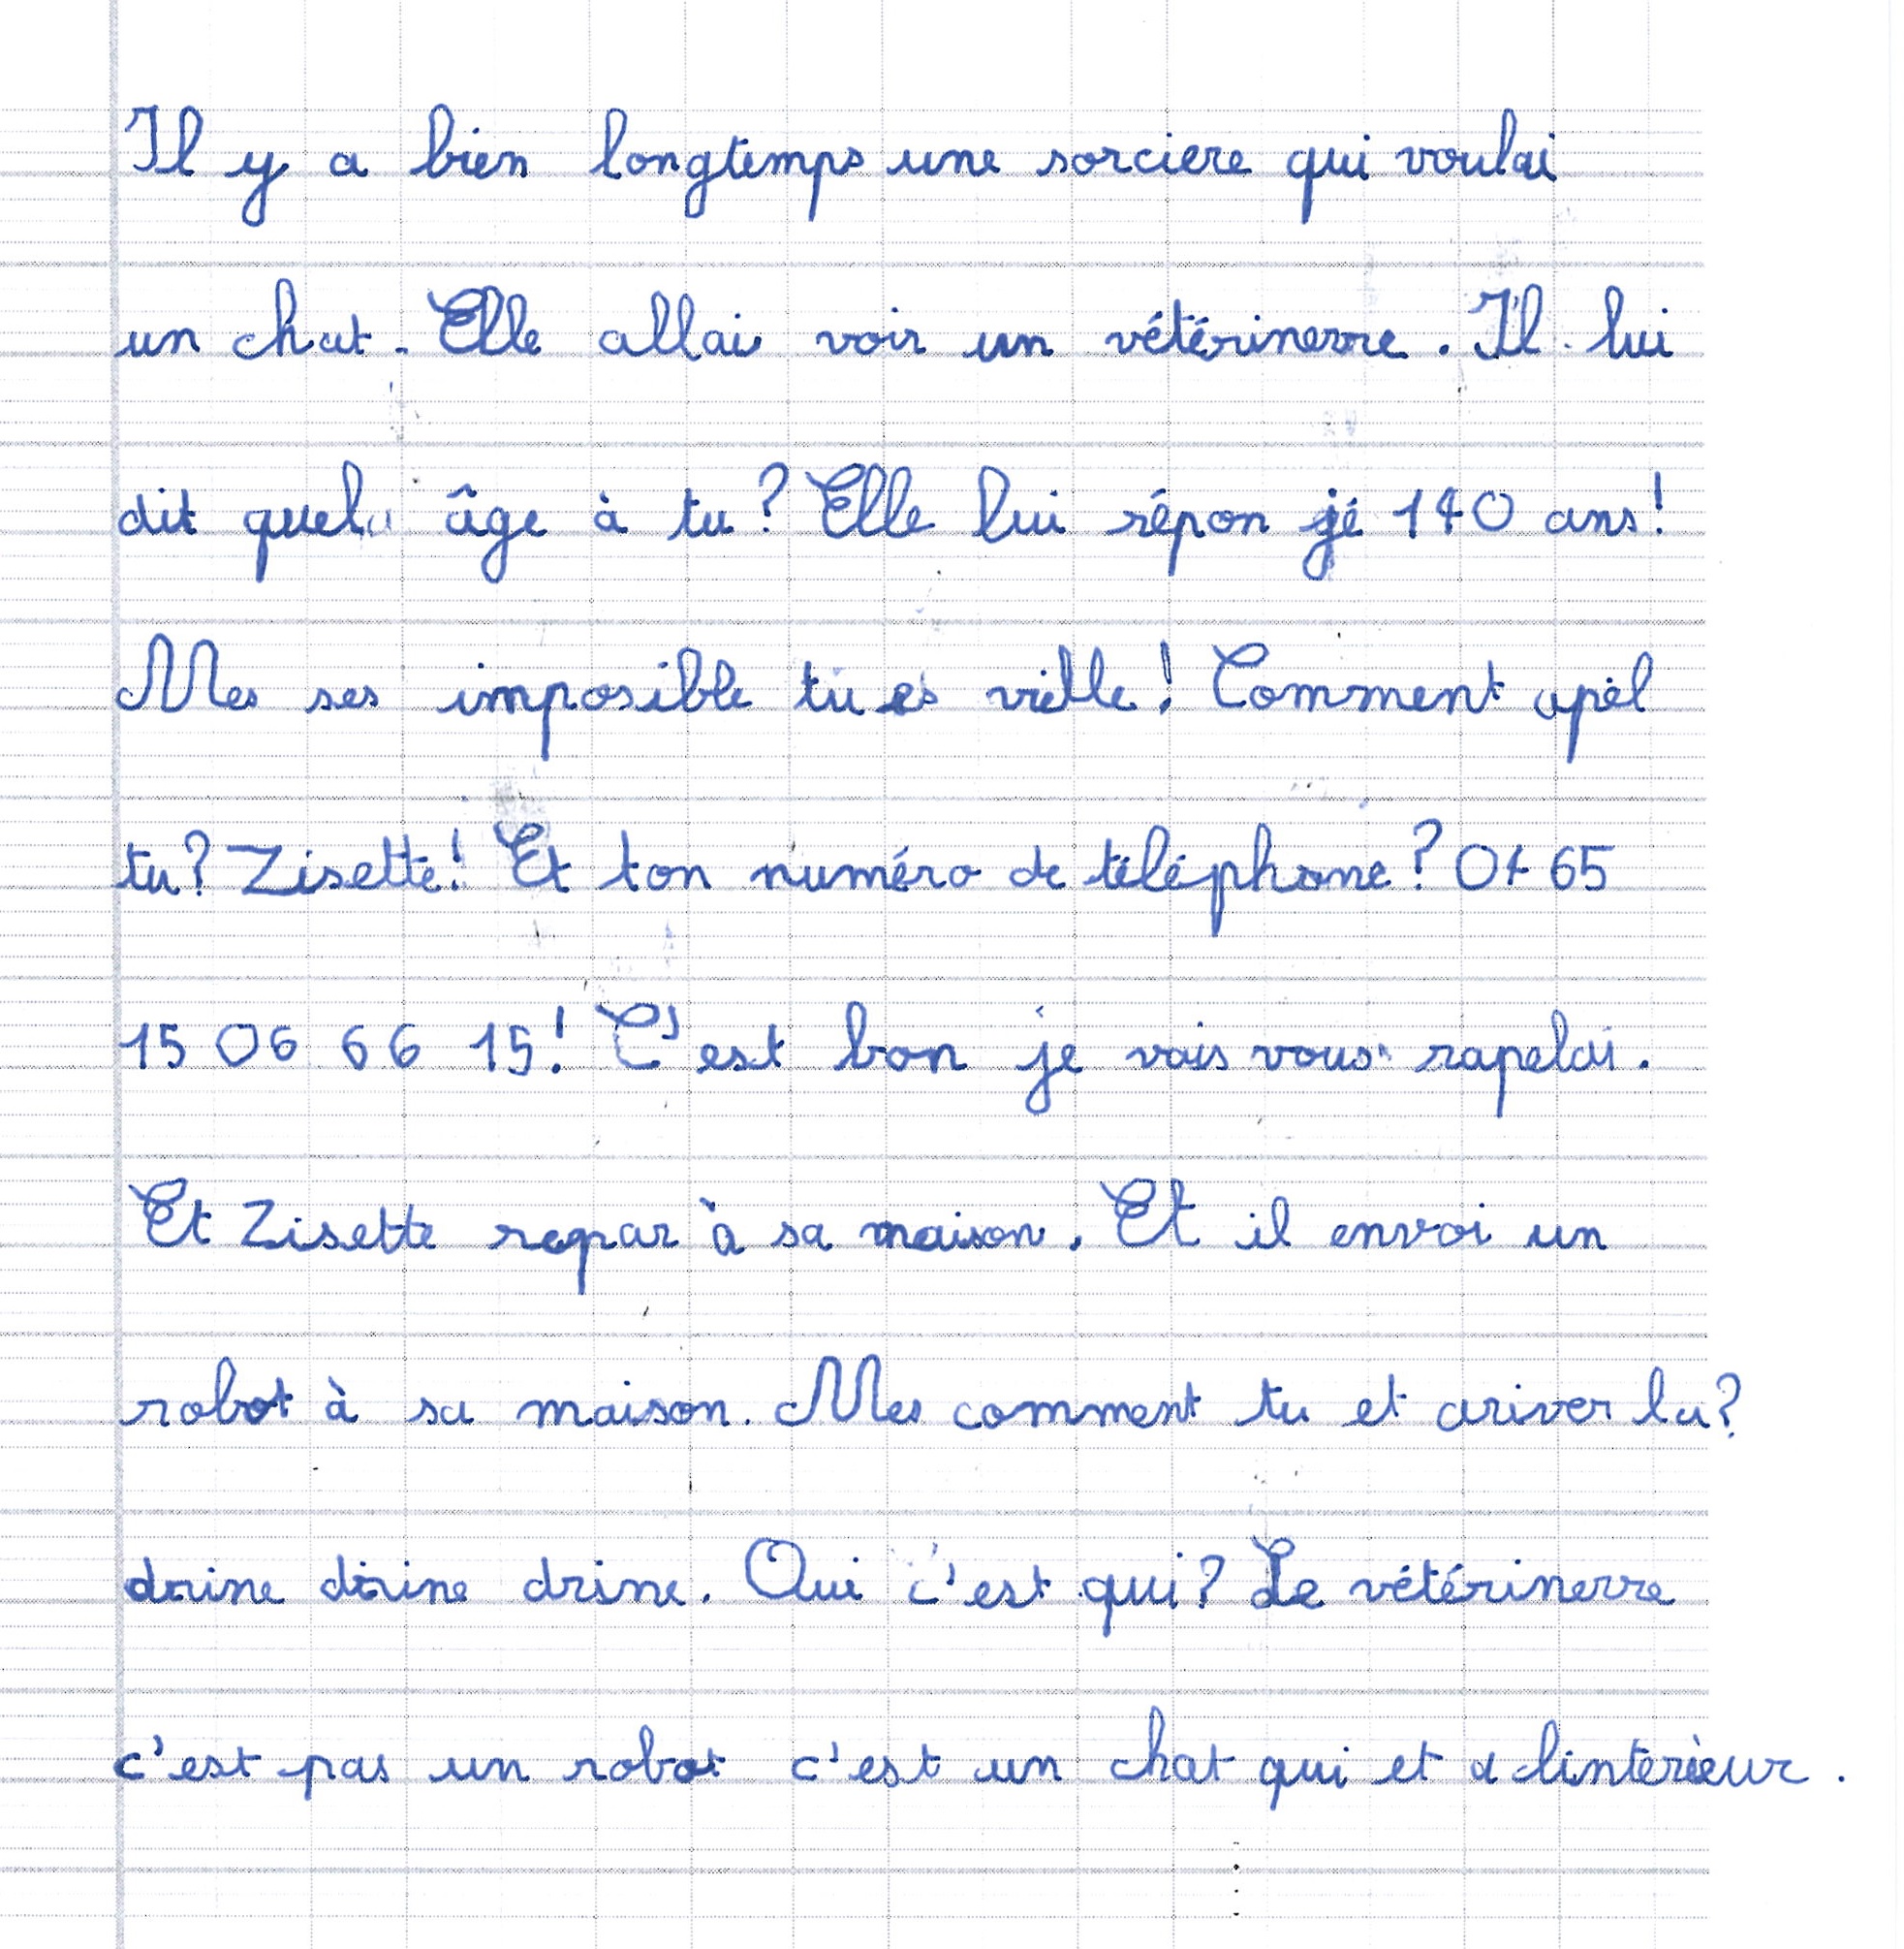 Il y a bien longtemps une sorciere qui voulai
un chat. Elle allai voir un vétérinerre. Il lui
dit quel âge à tu? Elle lui répon jé 140 ans!
Mes ses imposible tu es vielle! Comment apèl
tu? Zisette! Et ton numéro de téléphone? 04 65
15 06 66 15! C'est bon je vais vous rapelai.
Et Zisette repar à sa maison. Et il envoi un
robot à sa maison. Mes comment tu et ariver la?
drine drine drine. Oui c'est qui? Le vétérinerre
c'est pas un robot c'est un chat qui et a linterieur.